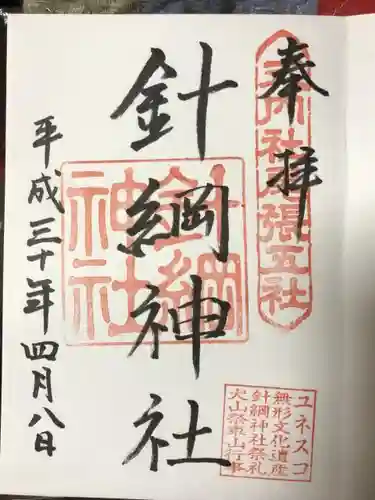 奉拝
式内社尾張五社
針綱神社
針綱神社
平成三十年四月八日
ユネスコ
無形文化遺産
針綱神社祭礼
犬山祭車山行事